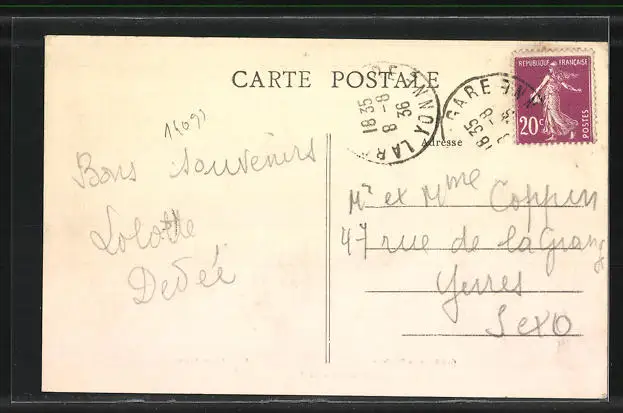 CARTE POSTALE
REPUBLIQUE FRANÇAISE
20c POSTES
18 35
8 -8
36
GARE
18 35
Adresse
14091
Bons souvenirs
Lolotte
Dédée
Mr et Mme Coppin
47 rue de la Grang
Yerres
S et O